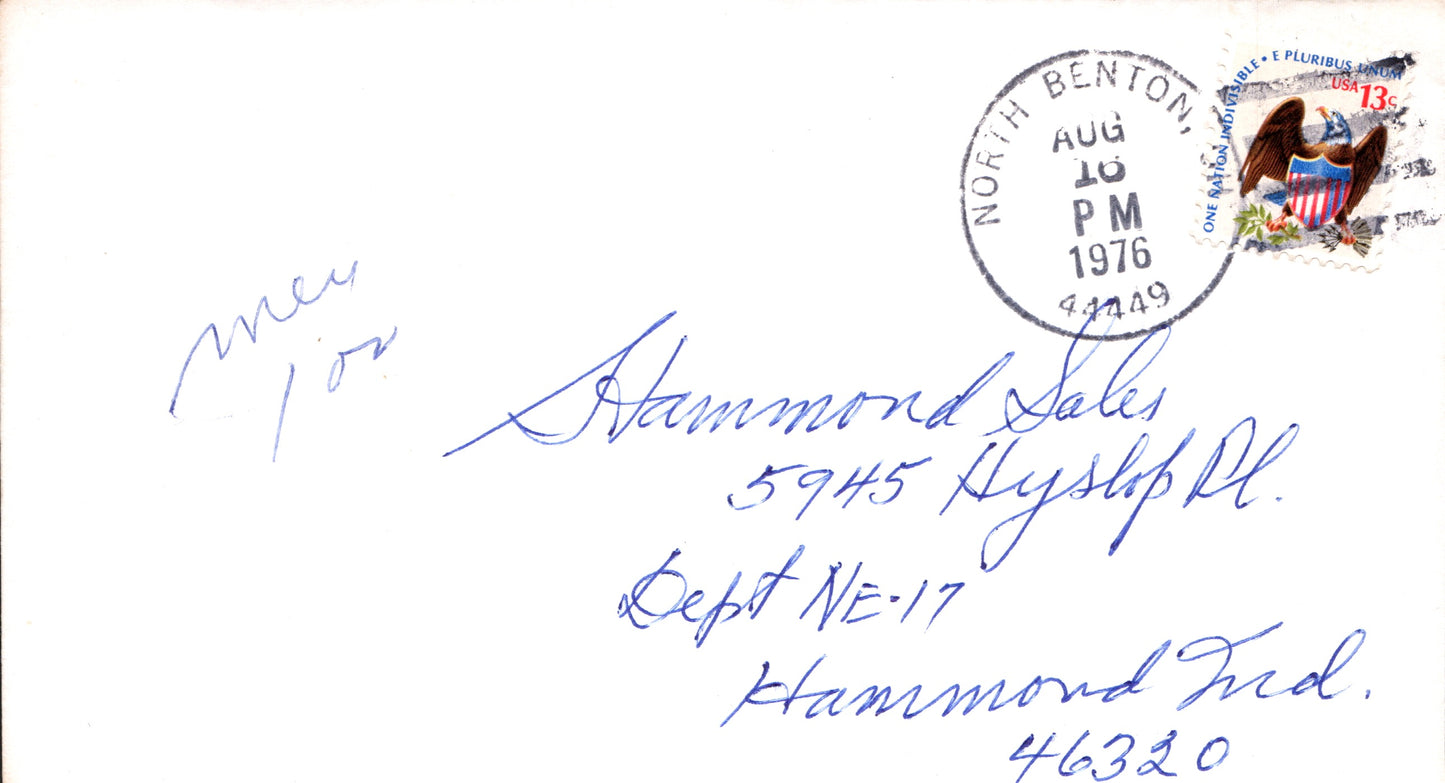 NORTH BENTON,
AUG
16
PM
1976
44449
ONE NATION INDIVISIBLE • E PLURIBUS UNUM
USA 13c
1 00
Hammond Sales
5945 Hyslop Pl.
Dept NE-17
Hammond Ind.
46320